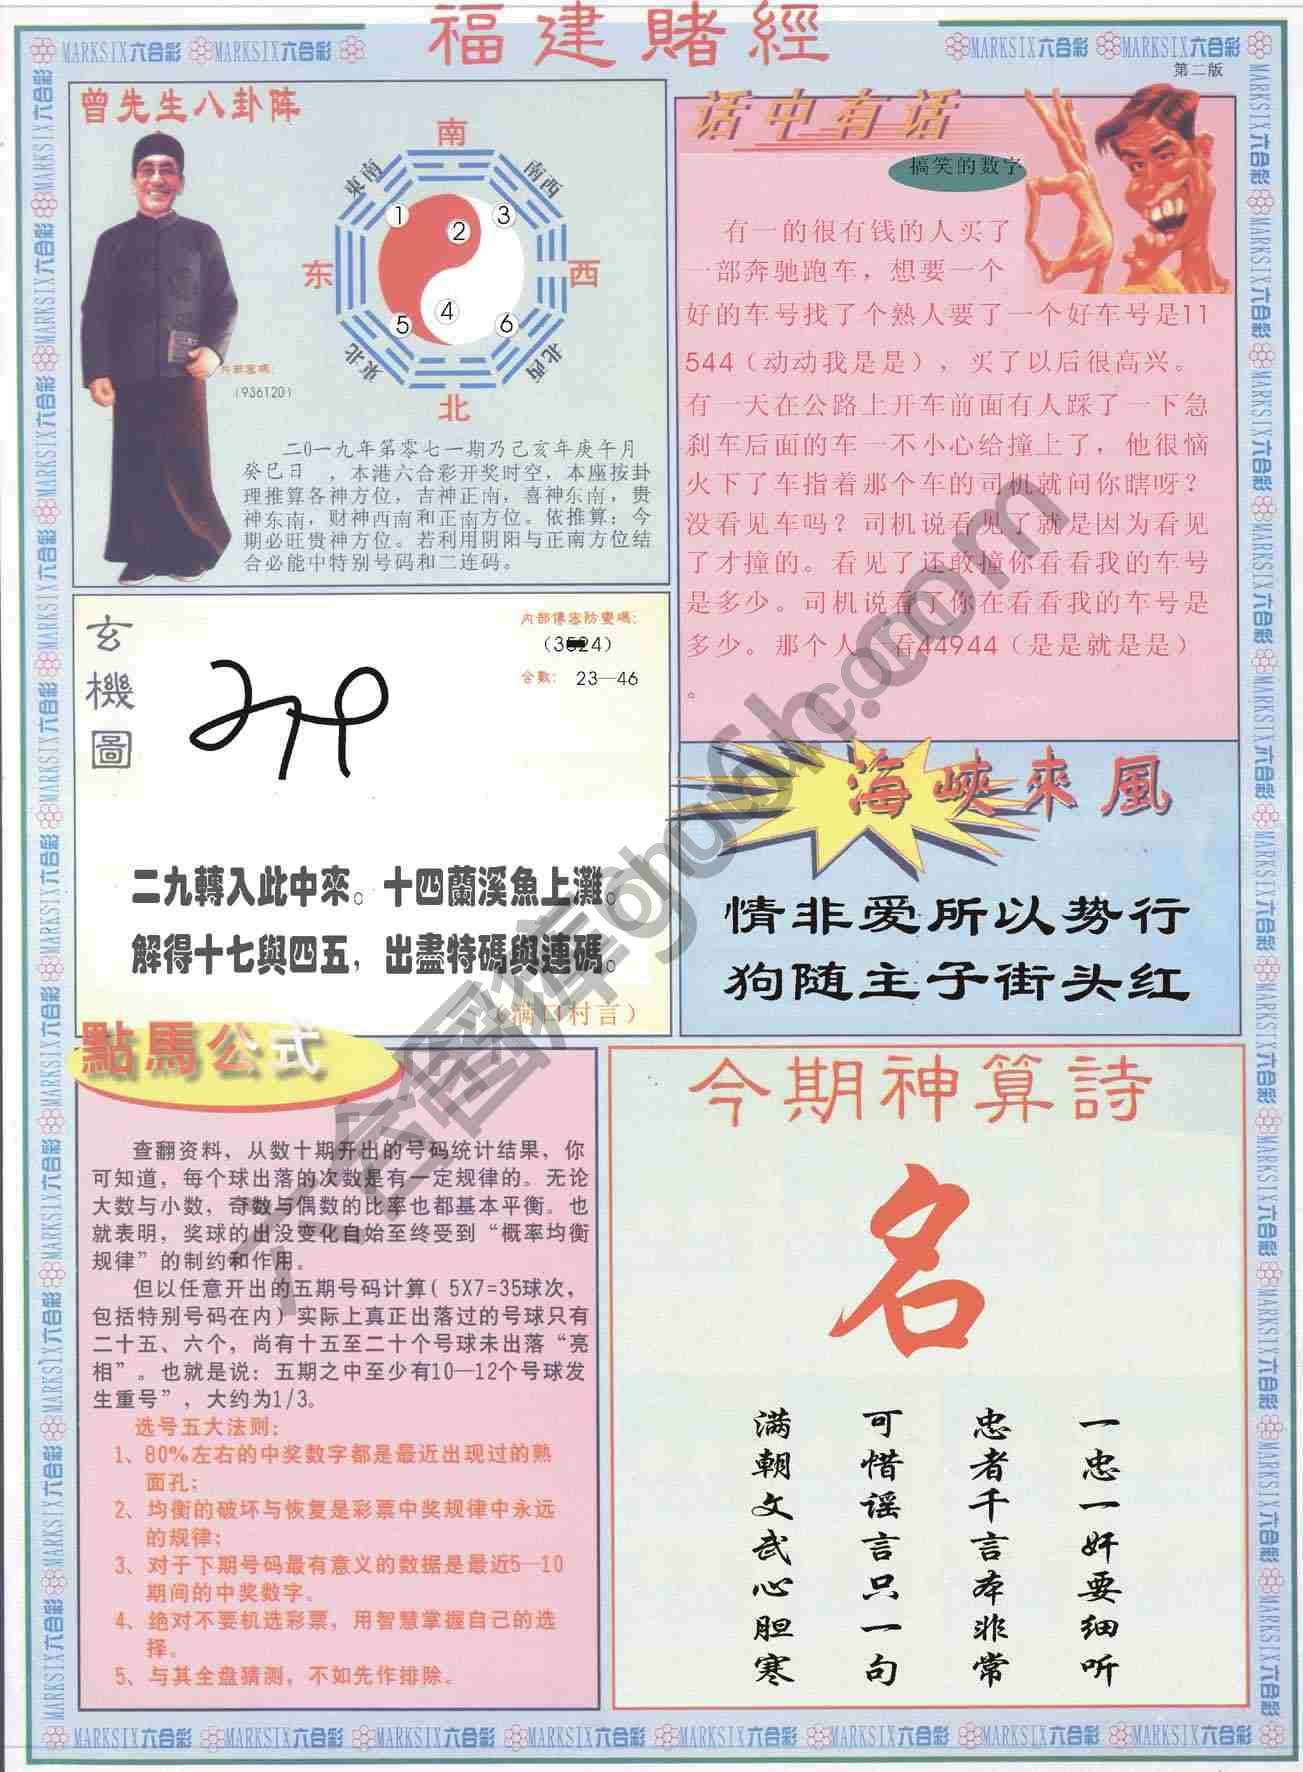 福建賭經
MARKSIX六合彩 MARKSIX六合彩
MARKSIX六合彩 MARKSIX六合彩
第二版
曾先生八卦阵
南
東南
南西
1
2
3
东
西
4
5
6
東北
北西
北
内部密碼：
（936120）
二0一九年第零七一期乃己亥年庚午月
癸巳日 ，本港六合彩开奖时空，本座按卦
理推算各神方位，吉神正南，喜神东南，贵
神东南，财神西南和正南方位。依推算；今
期必旺贵神方位。若利用阴阳与正南方位结
合必能中特别号码和二连码。
话中有话
搞笑的数字
有一的很有钱的人买了
一部奔驰跑车，想要一个
好的车号找了个熟人要了一个好车号是11
544（动动我是是），买了以后很高兴。
有一天在公路上开车前面有人踩了一下急
刹车后面的车一不小心给撞上了，他很恼
火下了车指着那个车的司机就问你瞎呀？
没看见车吗？司机说看见了就是因为看见
了才撞的。看见了还敢撞你看看我的车号
是多少。司机说看了你在看看我的车号是
多少。那个人一看44944（是是就是是）
。
玄機圖
内部傳密防變碼：
合數： 23—46
二九轉入此中來。十四蘭溪魚上灘。
解得十七與四五，出盡特碼與連碼。
（满口村言）
海峽來風
情非爱所以势行
狗随主子街头红
點馬公式
查翻资料，从数十期开出的号码统计结果，你
可知道，每个球出落的次数是有一定规律的。无论
大数与小数，奇数与偶数的比率也都基本平衡。也
就表明，奖球的出没变化自始至终受到“概率均衡
规律”的制约和作用。
但以任意开出的五期号码计算（5X7=35球次，
包括特别号码在内）实际上真正出落过的号球只有
二十五、六个，尚有十五至二十个号球未出落“亮
相”。也就是说：五期之中至少有10—12个号球发
生重号”，大约为1/3。
选号五大法则：
1、80%左右的中奖数字都是最近出现过的熟
面孔；
2、均衡的破坏与恢复是彩票中奖规律中永远
的规律；
3、对于下期号码最有意义的数据是最近5—10
期间的中奖数字。
4、绝对不要机选彩票，用智慧掌握自己的选
择。
5、与其全盘猜测，不如先作排除。
今期神算詩
名
一忠一奸要细听
忠者千言本非常
可惜谣言只一句
满朝文武心胆寒
MARKSIX六合彩 MARKSIX六合彩 MARKSIX六合彩 MARKSIX六合彩 MARKSIX六合彩 MARKSIX六合彩 MARKSIX六合彩 MARKSIX六合彩